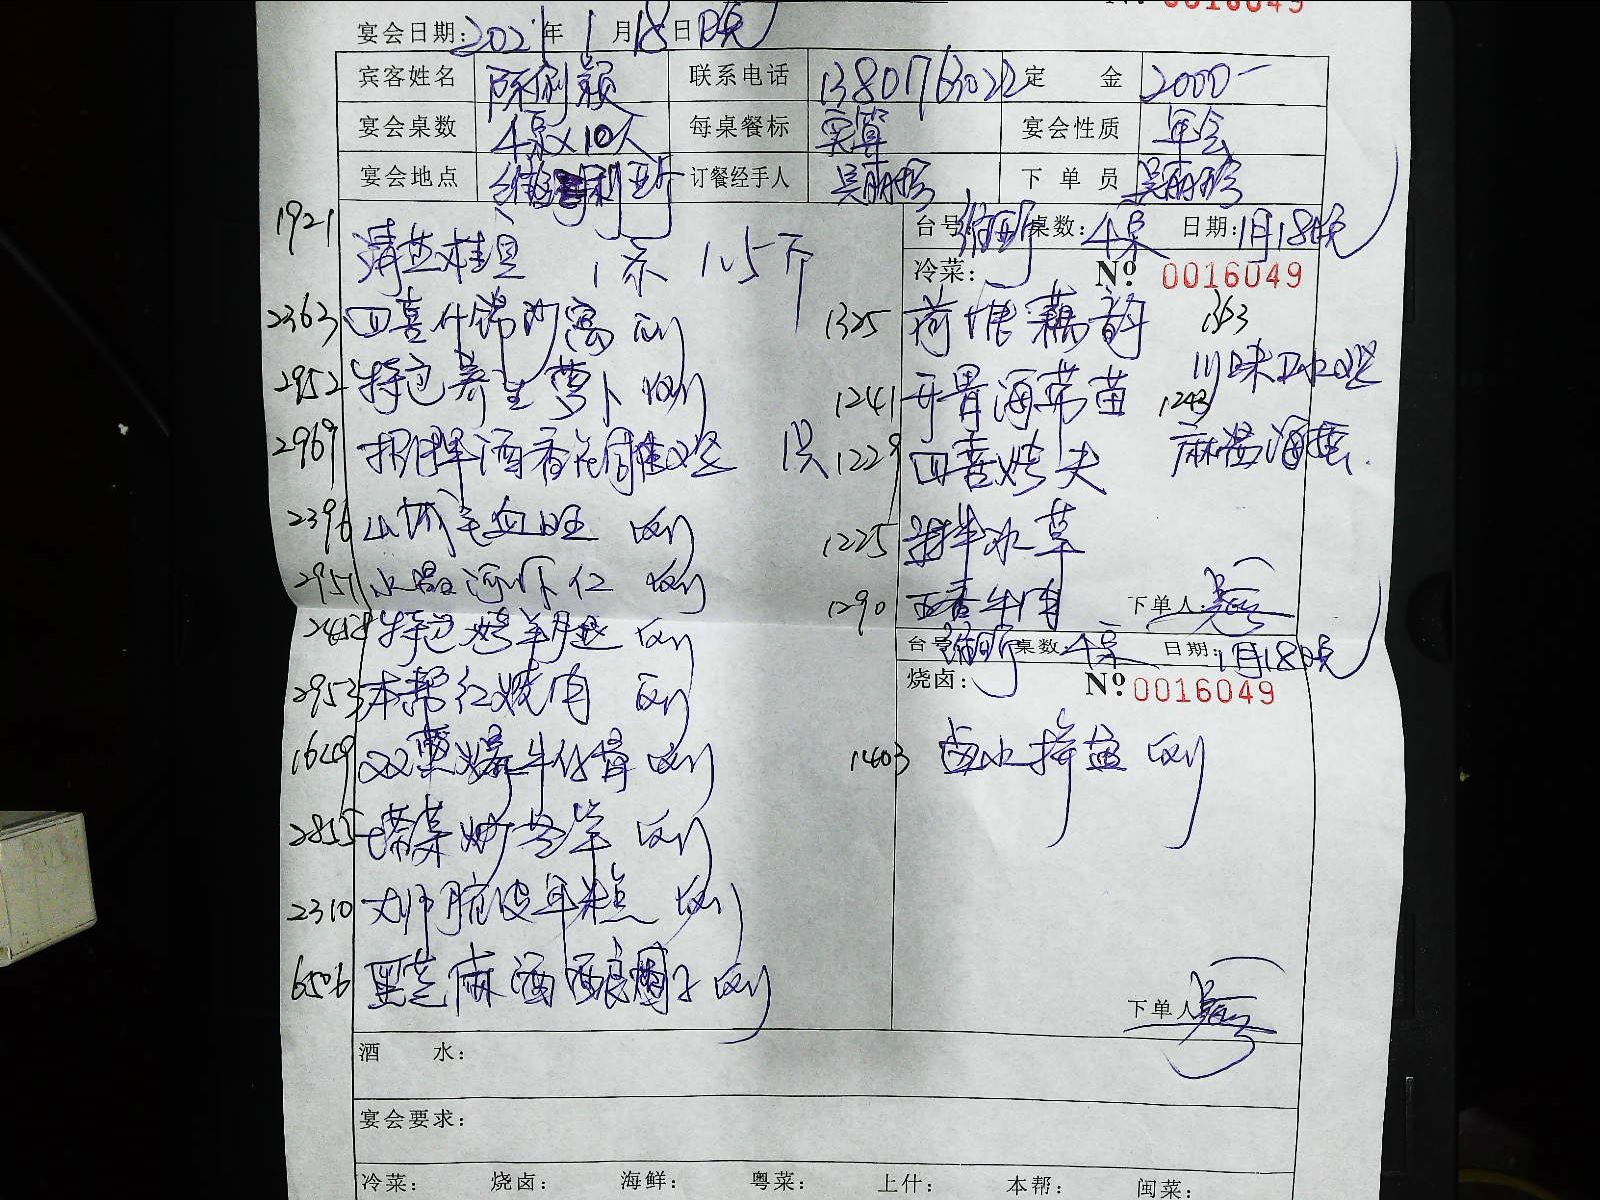 № 0016049
宴会日期：2021年1月18日晚
宾客姓名 联系电话 定金 2000-
宴会桌数 4桌×10人 每桌餐标 实算 宴会性质 年会
宴会地点 订餐经手人 下单员
台号： 桌数：4桌 日期：1月18晚
1921 清蒸桂鱼 1条 1.5斤
冷菜： № 0016049
2363 四喜什锦砂窝 例
1325 荷塘藕韵 1363
2952 特色养生萝卜 例
川味口水鸡
1241 开胃海带苗 1243
2969 招牌酒香花雕鸡 1只
1229 四喜烤夫 麻酱海蜇
2396 山城毛血旺 例
1225 拌冰草
2951 水晶河虾仁 例
1290 五香牛肉 下单人：
特色烤羊腿 例
台号： 桌数：4桌 日期：1月18晚
2953 本帮红烧肉 例
烧卤： № 0016049
1649 双葱爆牛仔骨 例
1403 卤水拼盘 例
2855 塔菜炒冬笋 例
2310 例
6506 黑芝麻酒酿圆子 例
下单人：
酒水：
宴会要求：
冷菜： 烧卤： 海鲜： 粤菜： 上什： 本帮： 闽菜：